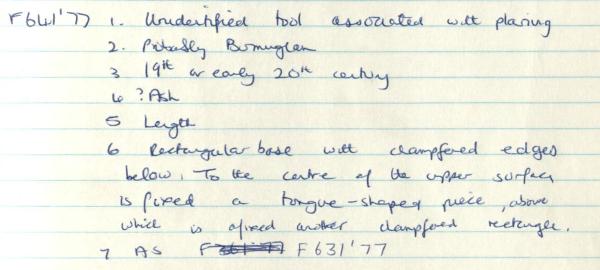 F641'77 1. Unidentified tool associated with planing
2. Probably Birmingham
3 19th or early 20th century
4 ? Ash
5 Length
6 Rectangular base with clampfered edges
below. To the centre of the upper surface
is fixed a tongue-shaped piece, above
which is afixed another clampfered rectangle.
7 AS F F631'77